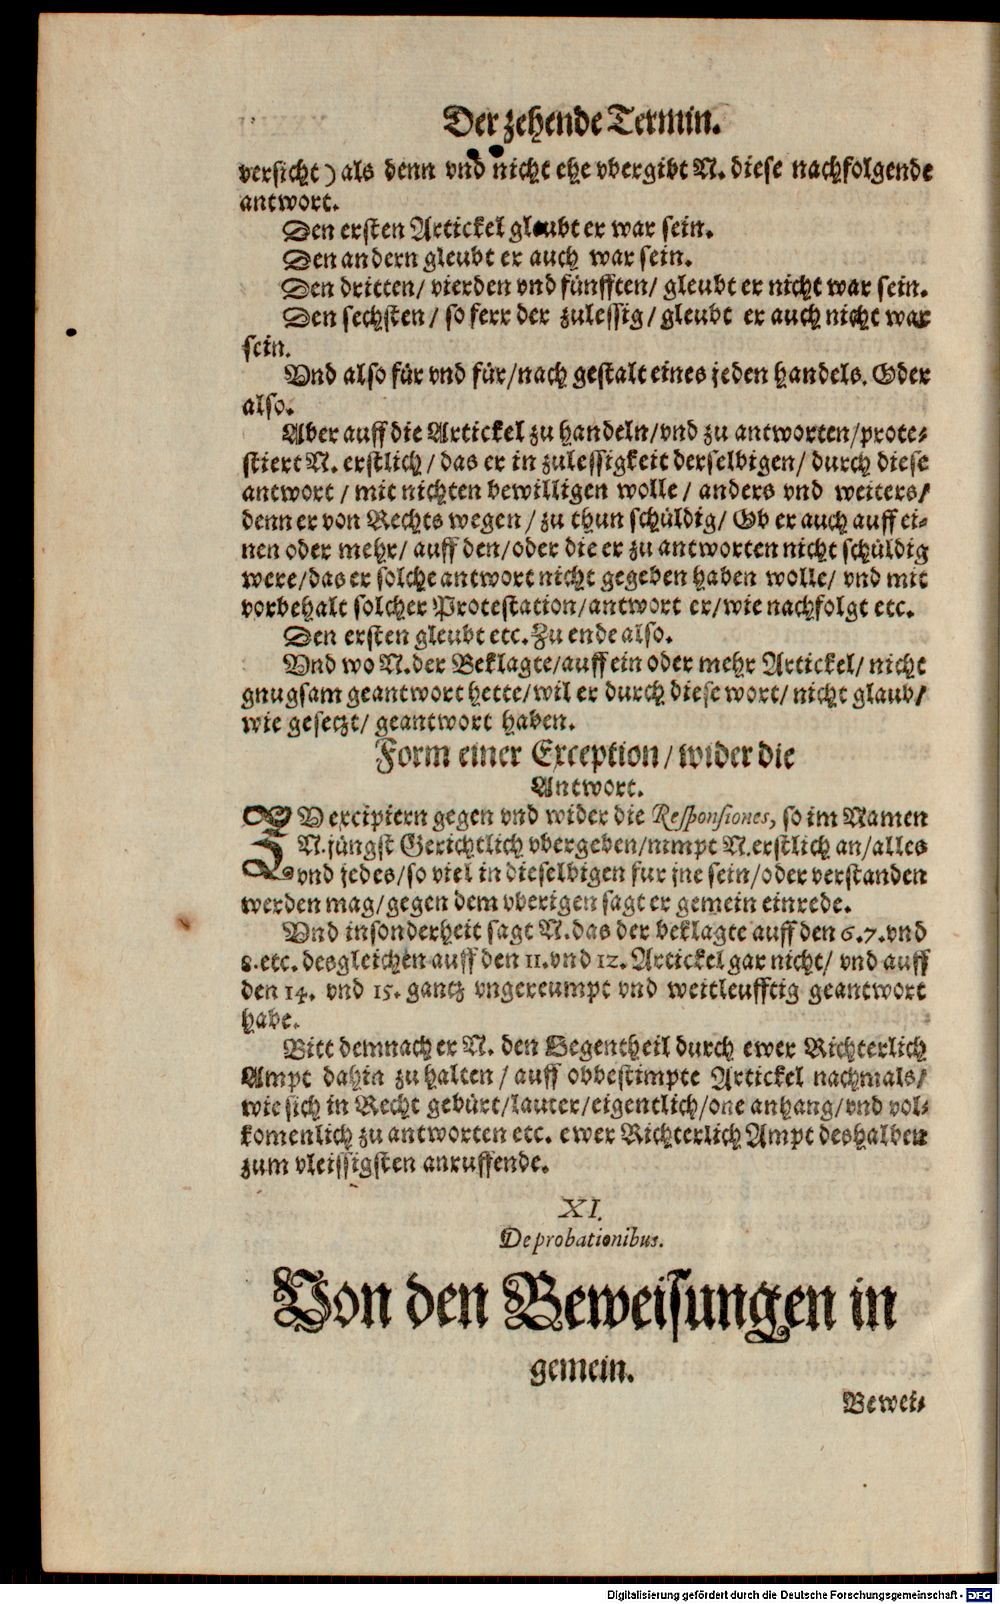 Der zehende Termin.
versicht) als denn vnd nicht ehe vbergibt N. diese nachfolgende
antwort.
Den ersten Artickel gleubt er war sein.
Den andern gleubt er auch war sein.
Den dritten/ vierden vnd fünfften/ gleubt er nicht war sein.
Den sechsten/ so ferr der zulessig/ gleubt er auch nicht war
sein.
Vnd also für vnd für/nach gestalt eines jeden handels. Oder
also.
Aber auff die Artickel zu handeln/vnd zu antworten/prote-
stiert N. erstlich/ das er in zulessigkeit derselbigen/ durch diese
antwort/ mit nichten bewilligen wolle/ anders vnd weiters/
denn er von Rechts wegen/ zu thun schüldig/ Ob er auch auff ei-
nen oder mehr/ auff den/oder die er zu antworten nicht schüldig
were/das er solche antwort nicht gegeben haben wolle/ vnd mit
vorbehalt solcher Protestation/antwort er/wie nachfolgt etc.
Den ersten gleubt etc. Zu ende also.
Vnd wo N. der Beklagte/auff ein oder mehr Artickel/ nicht
gnugsam geantwort hette/wil er durch diese wort/ nicht glaub/
wie gesetzt/ geantwort haben.
Form einer Exception/ wider die
Antwort.
ZV excipiern gegen vnd wider die Responsiones, so im Namen
N. jüngst Gerichtlich vbergeben/nimpt N. erstlich an/alles
vnd jedes/so viel in dieselbigen fur jne sein/oder verstanden
werden mag/gegen dem vberigen sagt er gemein einrede.
Vnd insonderheit sagt N. das der beklagte auff den 6.7.vnd
8.etc. desgleichen auff den 11.vnd 12. Artickel gar nicht/ vnd auff
den 14. vnd 15. gantz vngereumpt vnd weitleufftig geantwort
habe.
Bitt demnach er N. den Gegentheil durch ewer Richterlich
Ampt dahin zu halten/ auff obbestimpte Artickel nachmals/
wie sich in Recht gebürt/lauter/eigentlich/one anhang/vnd vol-
komenlich zu antworten etc. ewer Richterlich Ampt deshalben
zum vleissigsten anruffende.
XI.
De probationibus.
Von den Beweisungen in
gemein.
Bewei-
Digitalisierung gefördert durch die Deutsche Forschungsgemeinschaft - DFG